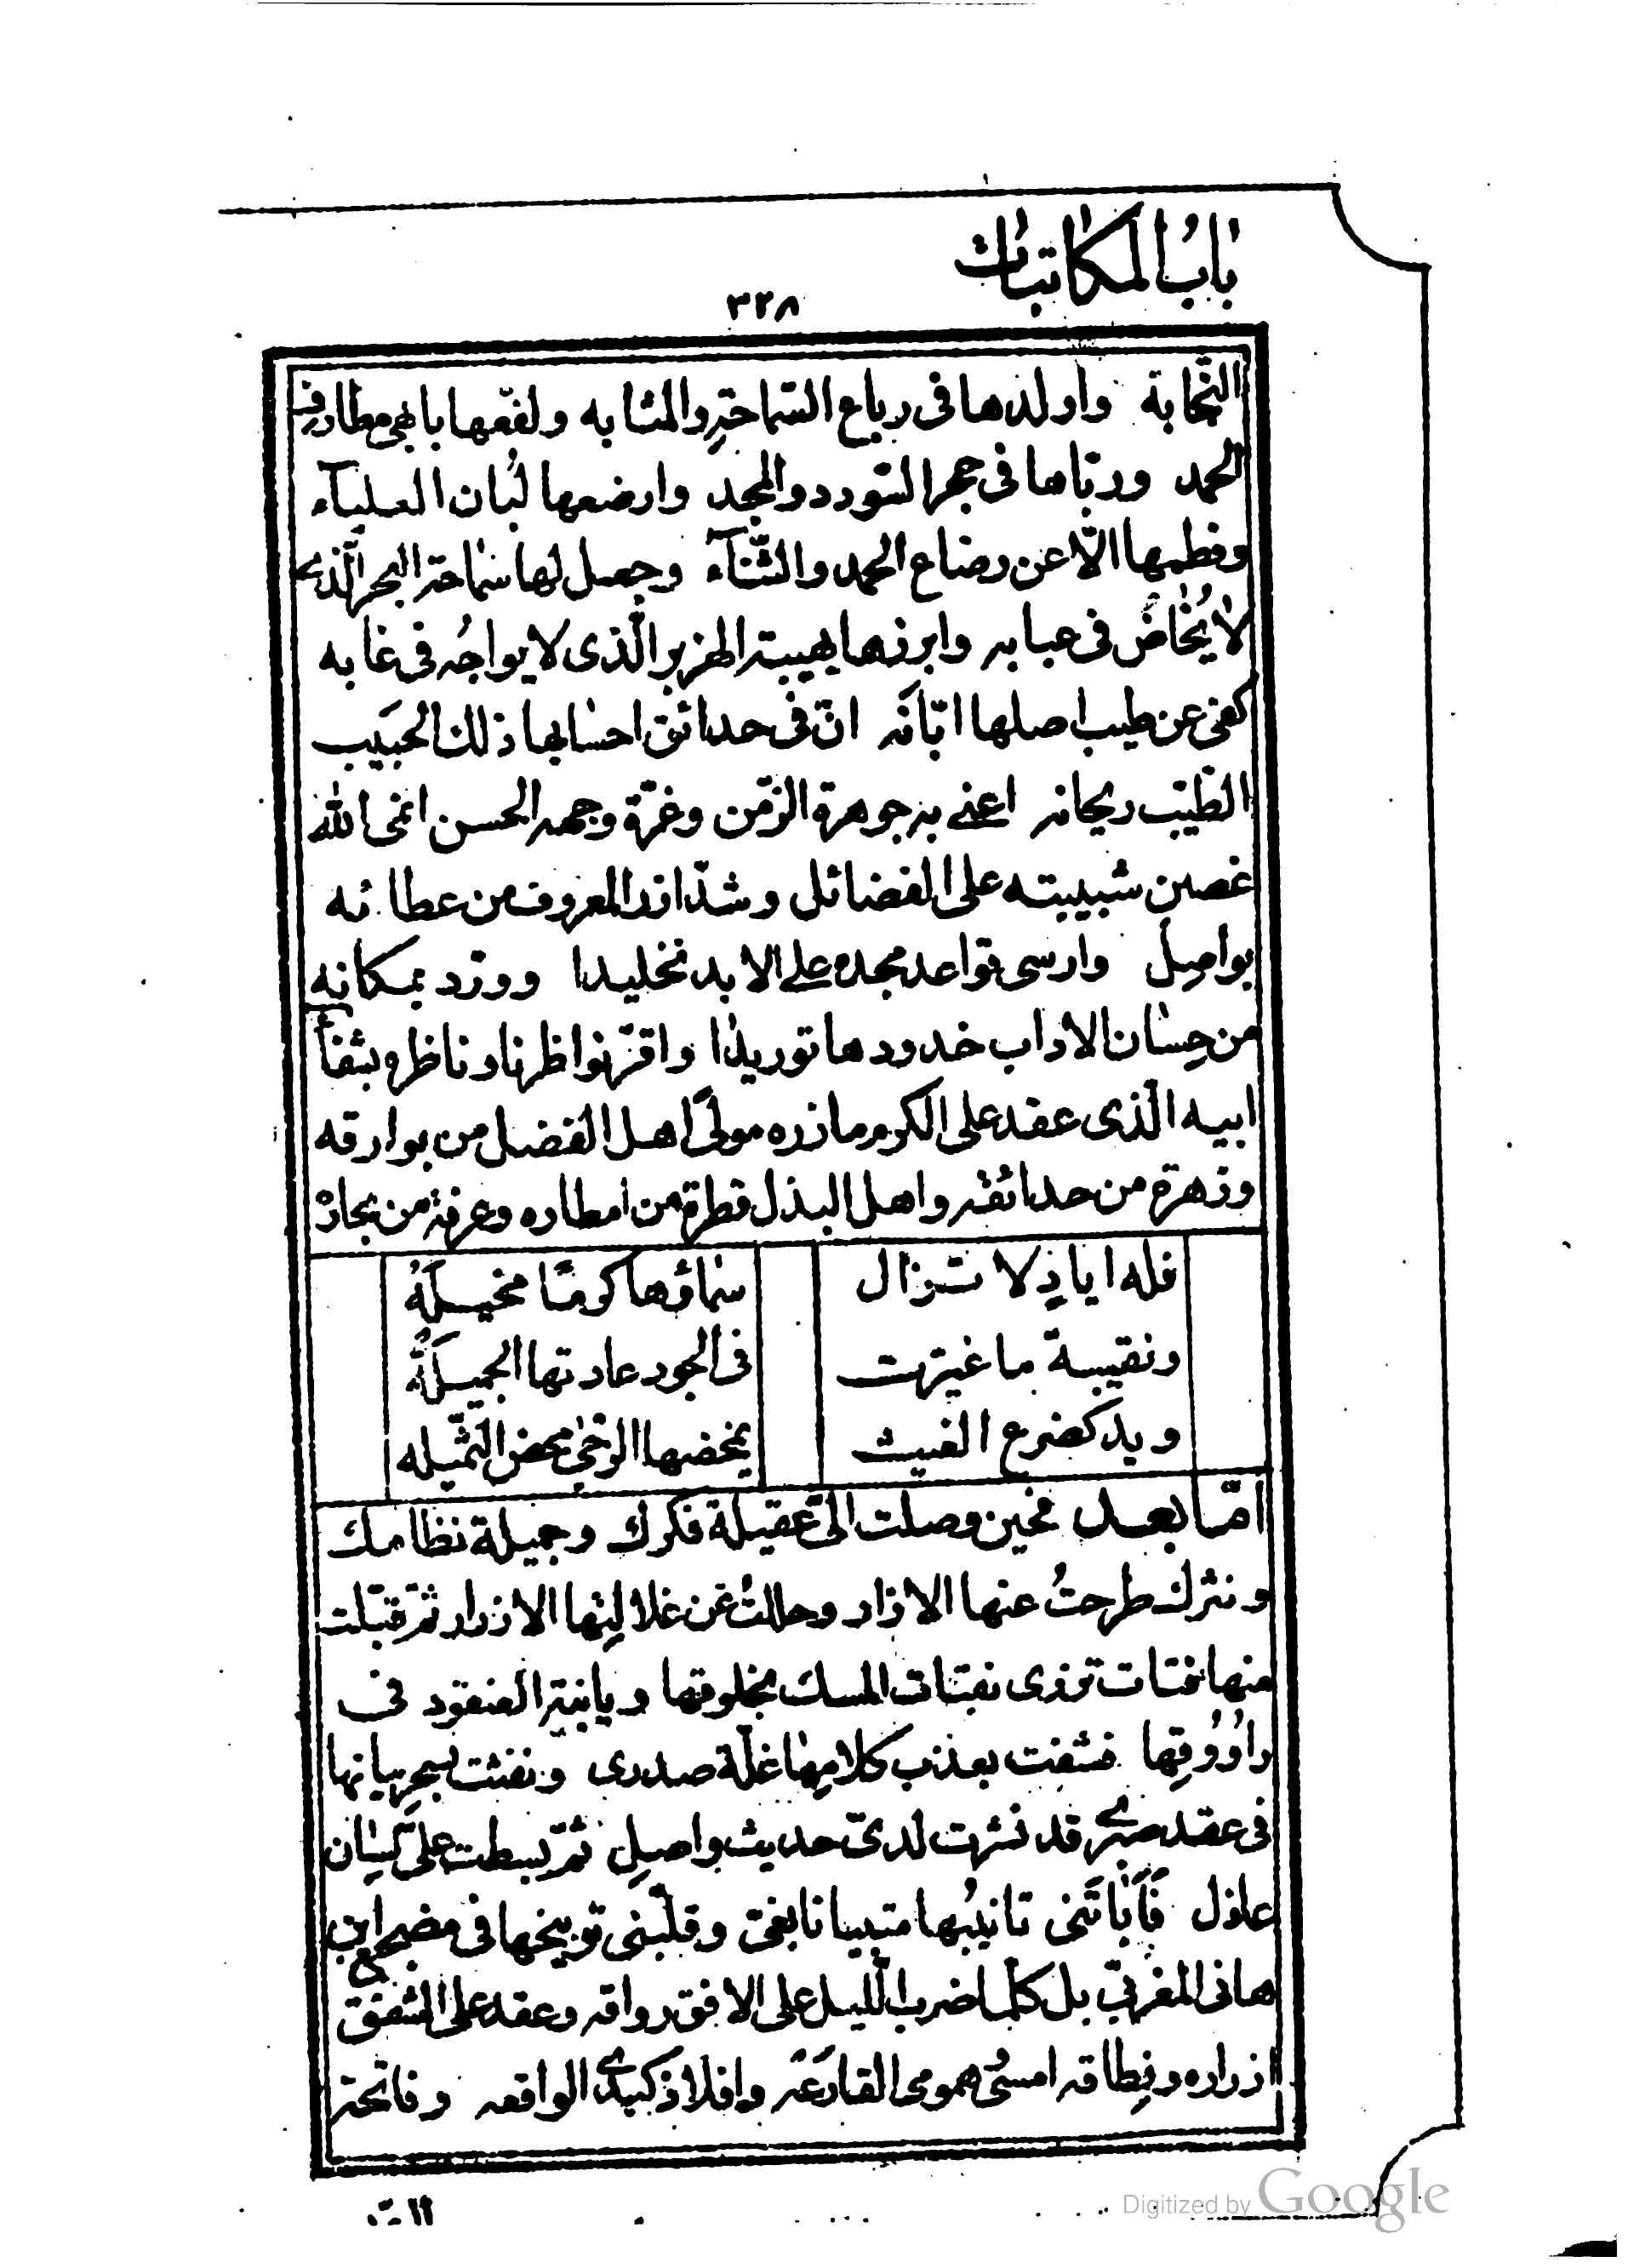 باب المكاتبات
٣٢٨
النّجابة واولدها فى رباع السّماحة والمثابه ولفّعها بابهى مطارف
الحمد وربّاها فى حجر السّودد والمجد وارضعها لُبان العليآء
وفطمها الّا عن رضاع الحمد والثّنآء وجعل لها سماحة البحر الّذى
لا يُخاضُ فى عبابه وابرزها بهيبة الهزبر الّذى لا يواجُه فى غابه
كفى عن طيب اصلها ابّانَه انّ فى حدائق احسابها ذلك الحَبيب
الطّيّب ريحانه اعنى به جوهرة الزّمن وغرّة وجه الحسن انمى الله
غصن شبيبته على الفضائل وشدّ ازر المعروف من عطائه
بواصِل وارسى قواعد مجده على الابد تخليدا وورّد بمكانه
من حِسان الاداب خدودها توريدًا واقرّ نواظرنا وناظره بشفآ
ابيه الّذى عقد على الكرم مازره مولىً اهل الفضل من بوارقه
وزهرة من حدائقه واهل البذل قطرة من امطاره وغرفة من بحارهْ
فله ايادٍ لا تزال سماؤها كرمًا مخيلَهُ
ونقيبة ما غيّرت فى الجود عادتها الجميلَهُ
ويد كضرع الغيث يمخضها الرّجى محض الثّميله
امّا بعد فحين وصلت الىّ عقيلة فكرك وجميلة نظامك
ونثرك طرحتُ عنها الازار وحللتُ عن غلالتِها الازرار ثمّ قبّلت
منها نفثات تزرى نفثات المسك بخلوقها وبابنة العنقود فى
راوُوُقِها فشفت بعذب كلامِها غلّة صدرى ونفثت بسحر بيانها
فى عقد صبرى قد نشرت لدىّ حديث واصِلِ ثمّ بسطت علىّ لسان
عاذل فَآبَاتَنى تانيبُها متبيا نابغى وقلّبنى توبيخها فى مضجع ابن
هانى المغربّى بل كلّما ضرب اللّيل على الافق رواقه وعقد على الشفق
ازراره ونِطاقه امسىُ همومى القارَعَه وافلاذ كبدى الواقعه وفاتحة